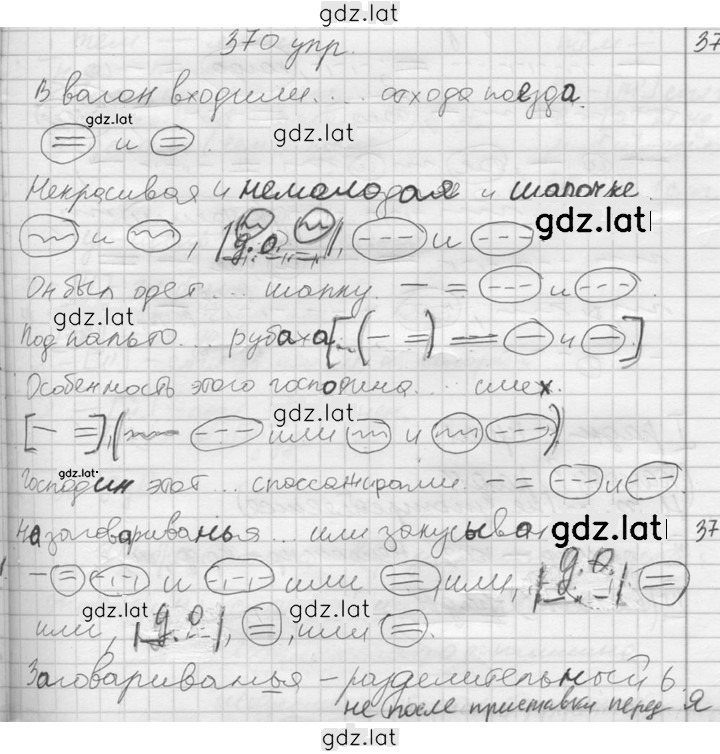 gdz.lat
370 упр.
37
В вагон входили.... отхода поезда.
gdz.lat
и
gdz.lat
Некрасивая и немолодая и шапочке
и , |д.о.|, и
gdz.lat
Он был одет ... шапку. — = и .
gdz.lat
Под пальто ... рубаха [...(— =) = и ]
Особенность этого господина ... смех.
gdz.lat
[— =], ( или и )
gdz.lat
Господин этот ... с пассажирами. — = и .
На заговариванья ... или закусывал
gdz.lat
37
— = и или , или, |д.о.|
gdz.lat
gdz.lat
или, |д.о.|, , или .
Заговариванья – разделительный ь
не после приставки перед я
gdz.lat